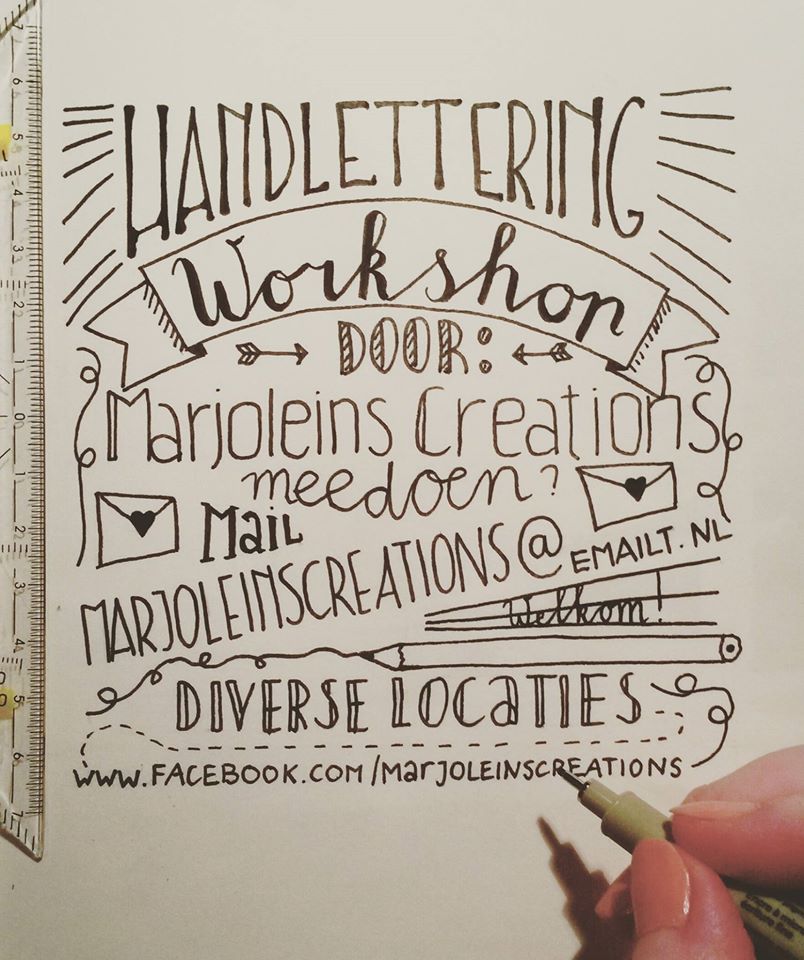 HANDLETTERING
Workshop
DOOR:
Marjoleins Creations
meedoen?
Mail
MARJOLEINSCREATIONS@EMAILT.NL
Welkom!
DIVERSE LOCATIES
www.FACEBOOK.COM/MARJOLEINSCREATIONS
7
6
5
4
3
2
1
0
1
2
3
4
5
6
7